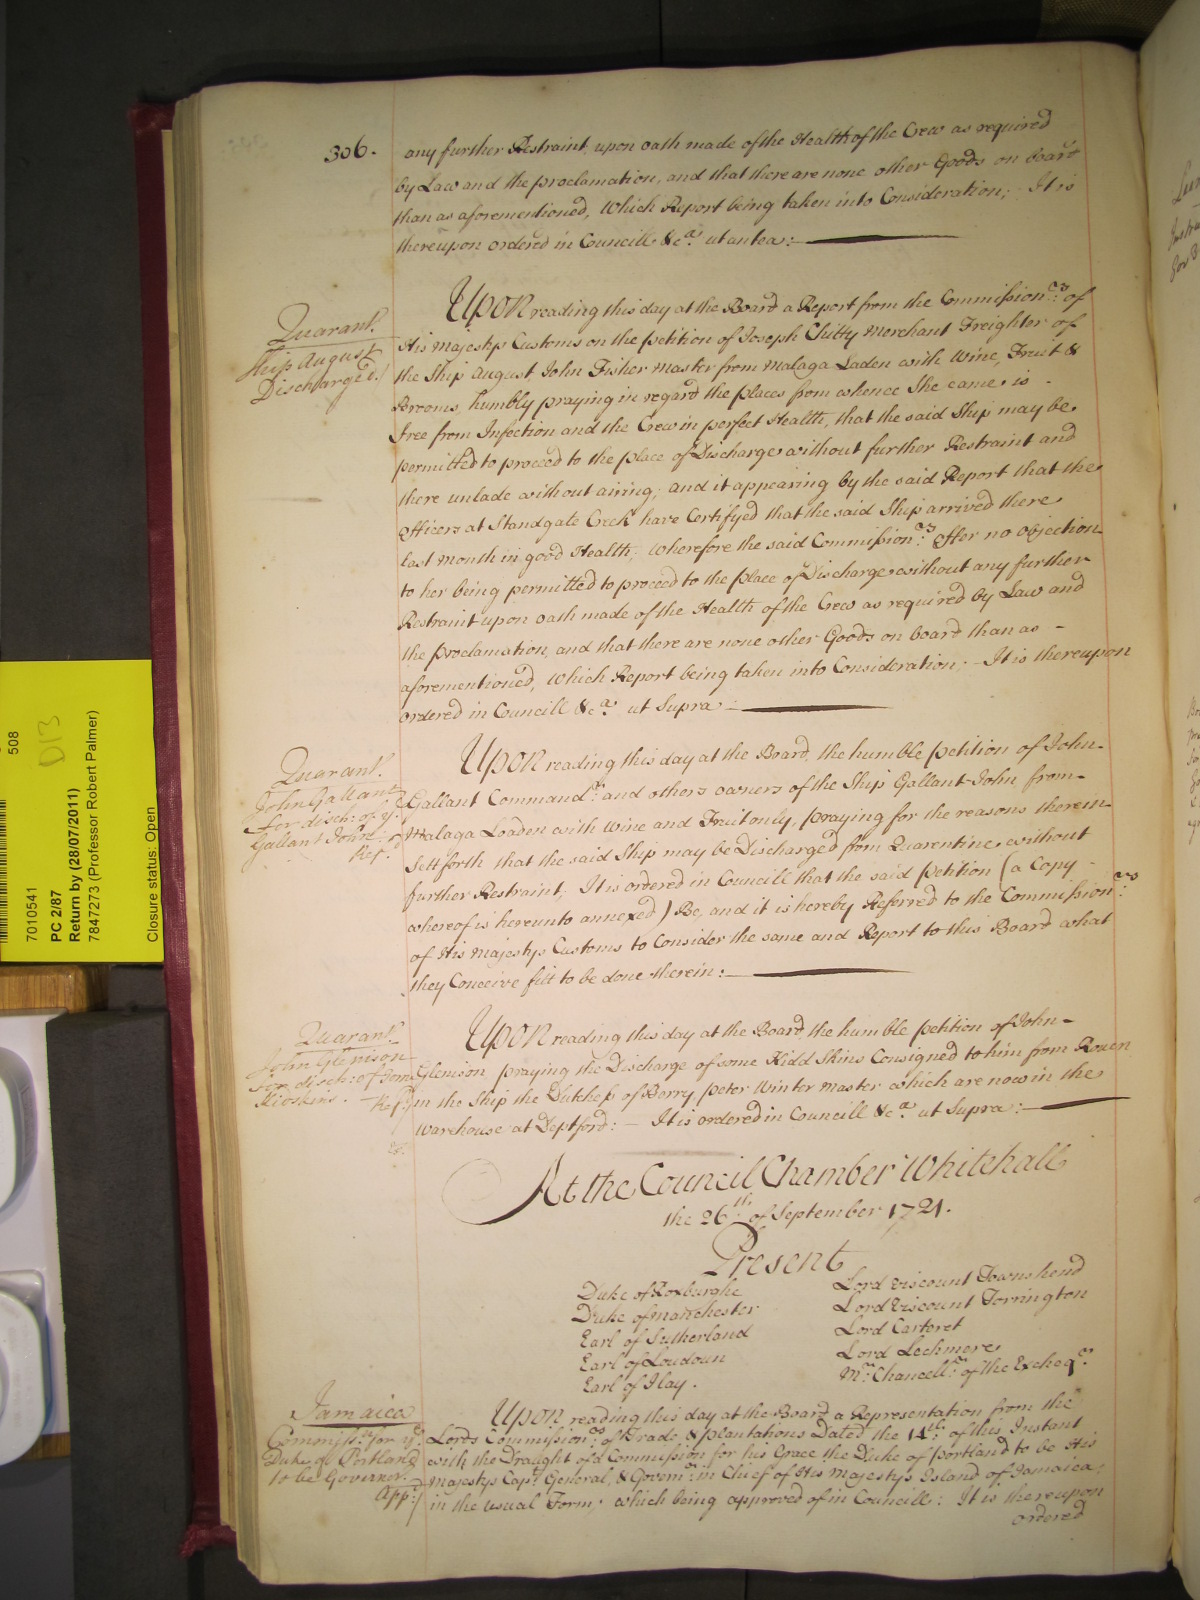 306.
any further Restraint, upon oath made of the Health of the Crew as required
by Law and the proclamation, and that there are none other Goods on board
than as aforementioned, Which Report being taken into Consideration; It is
thereupon ordered in Councill &c.a ut antea:
Quarant.
Ship August
Discharged.
Upon reading this day at the Board a Report from the Commission.rs of
His Majestys Customs on the petition of Joseph Chitty Merchant Freighter of
the Ship August, John Fisher Master from Malaga Laden with Wine, Fruit &
Brooms, humbly praying in regard the places from whence She came is
free from Infection and the Crew in perfect Health, that the said Ship may be
permitted to proceed to the place of Discharge without further Restraint and
there unlade without airing; and it appearing by the said Report that the
Officers at Standgate Creek have Certifyed that the said Ship arrived there
last month in good Health; Wherefore the said Commission.rs Offer no objection
to her being permitted to proceed to the place of Discharge without any further
Restraint upon oath made of the Health of the Crew as required by Law and
the proclamation, and that there are none other Goods on board than as -
aforementioned, Which Report being taken into Consideration; - It is thereupon
ordered in Councill &c.a ut Supra -
Quarant.
John Gallant
for disch: of ye.
Gallant John
Ref.
Upon reading this day at the Board, the humble petition of John
Gallant Command.r and others owners of the Ship Gallant John from
Malaga Loaden with Wine and Fruit only, praying for the reasons therein
Sett forth that the said Ship may be Discharged from Quarentine without
further Restraint; It is ordered in Councill that the said petition (a Copy
whereof is hereunto annexed) Be, and it is hereby Referred to the Commission.rs
of His Majestys Customs to Consider the same and Report to this Board what
they Conceive fitt to be done therein:
Quarant.
John Glenison
for disch: of some
Kidskins. Ref.
Upon reading this day at the Board, the humble petition of John
Glenison, praying the Discharge of some Kidd Skins Consigned to him from Rouen
in the Ship the Dutchess of Berry, Peter Winter master which are now in the
Warehouse at Deptford: - It is ordered in Councill &c.a ut Supra:
At the Council Chamber Whitehall
the 26.th of September 1721.
Present
Duke of Roxburghe
Duke of Manchester
Earl of Sutherland
Earl of Loudoun
Earl of Ilay.
Lord Viscount Townshend
Lord Viscount Torrington
Lord Carteret
Lord Lechmere
Mr. Chancell.r of the Excheq.r
Jamaica
Commiss.n for ye.
Duke of Portland
to be Governor.
App.d
Upon reading this day at the Board a Representation from the
Lords Commission.rs of Trade & plantations Dated the 14.th of this Instant
with the Draught of a Commission for his Grace the Duke of Portland to be His
Majestys Cap.t General, & Govern.r in Chief of His Majestys Island of Jamaica;
in the usual Form; which being approved of in Councill: It is thereupon
ordered
508
D13
7010541
PC 2/87
Return by (28/07/2011)
7847273 (Professor Robert Palmer)
Closure status: Open